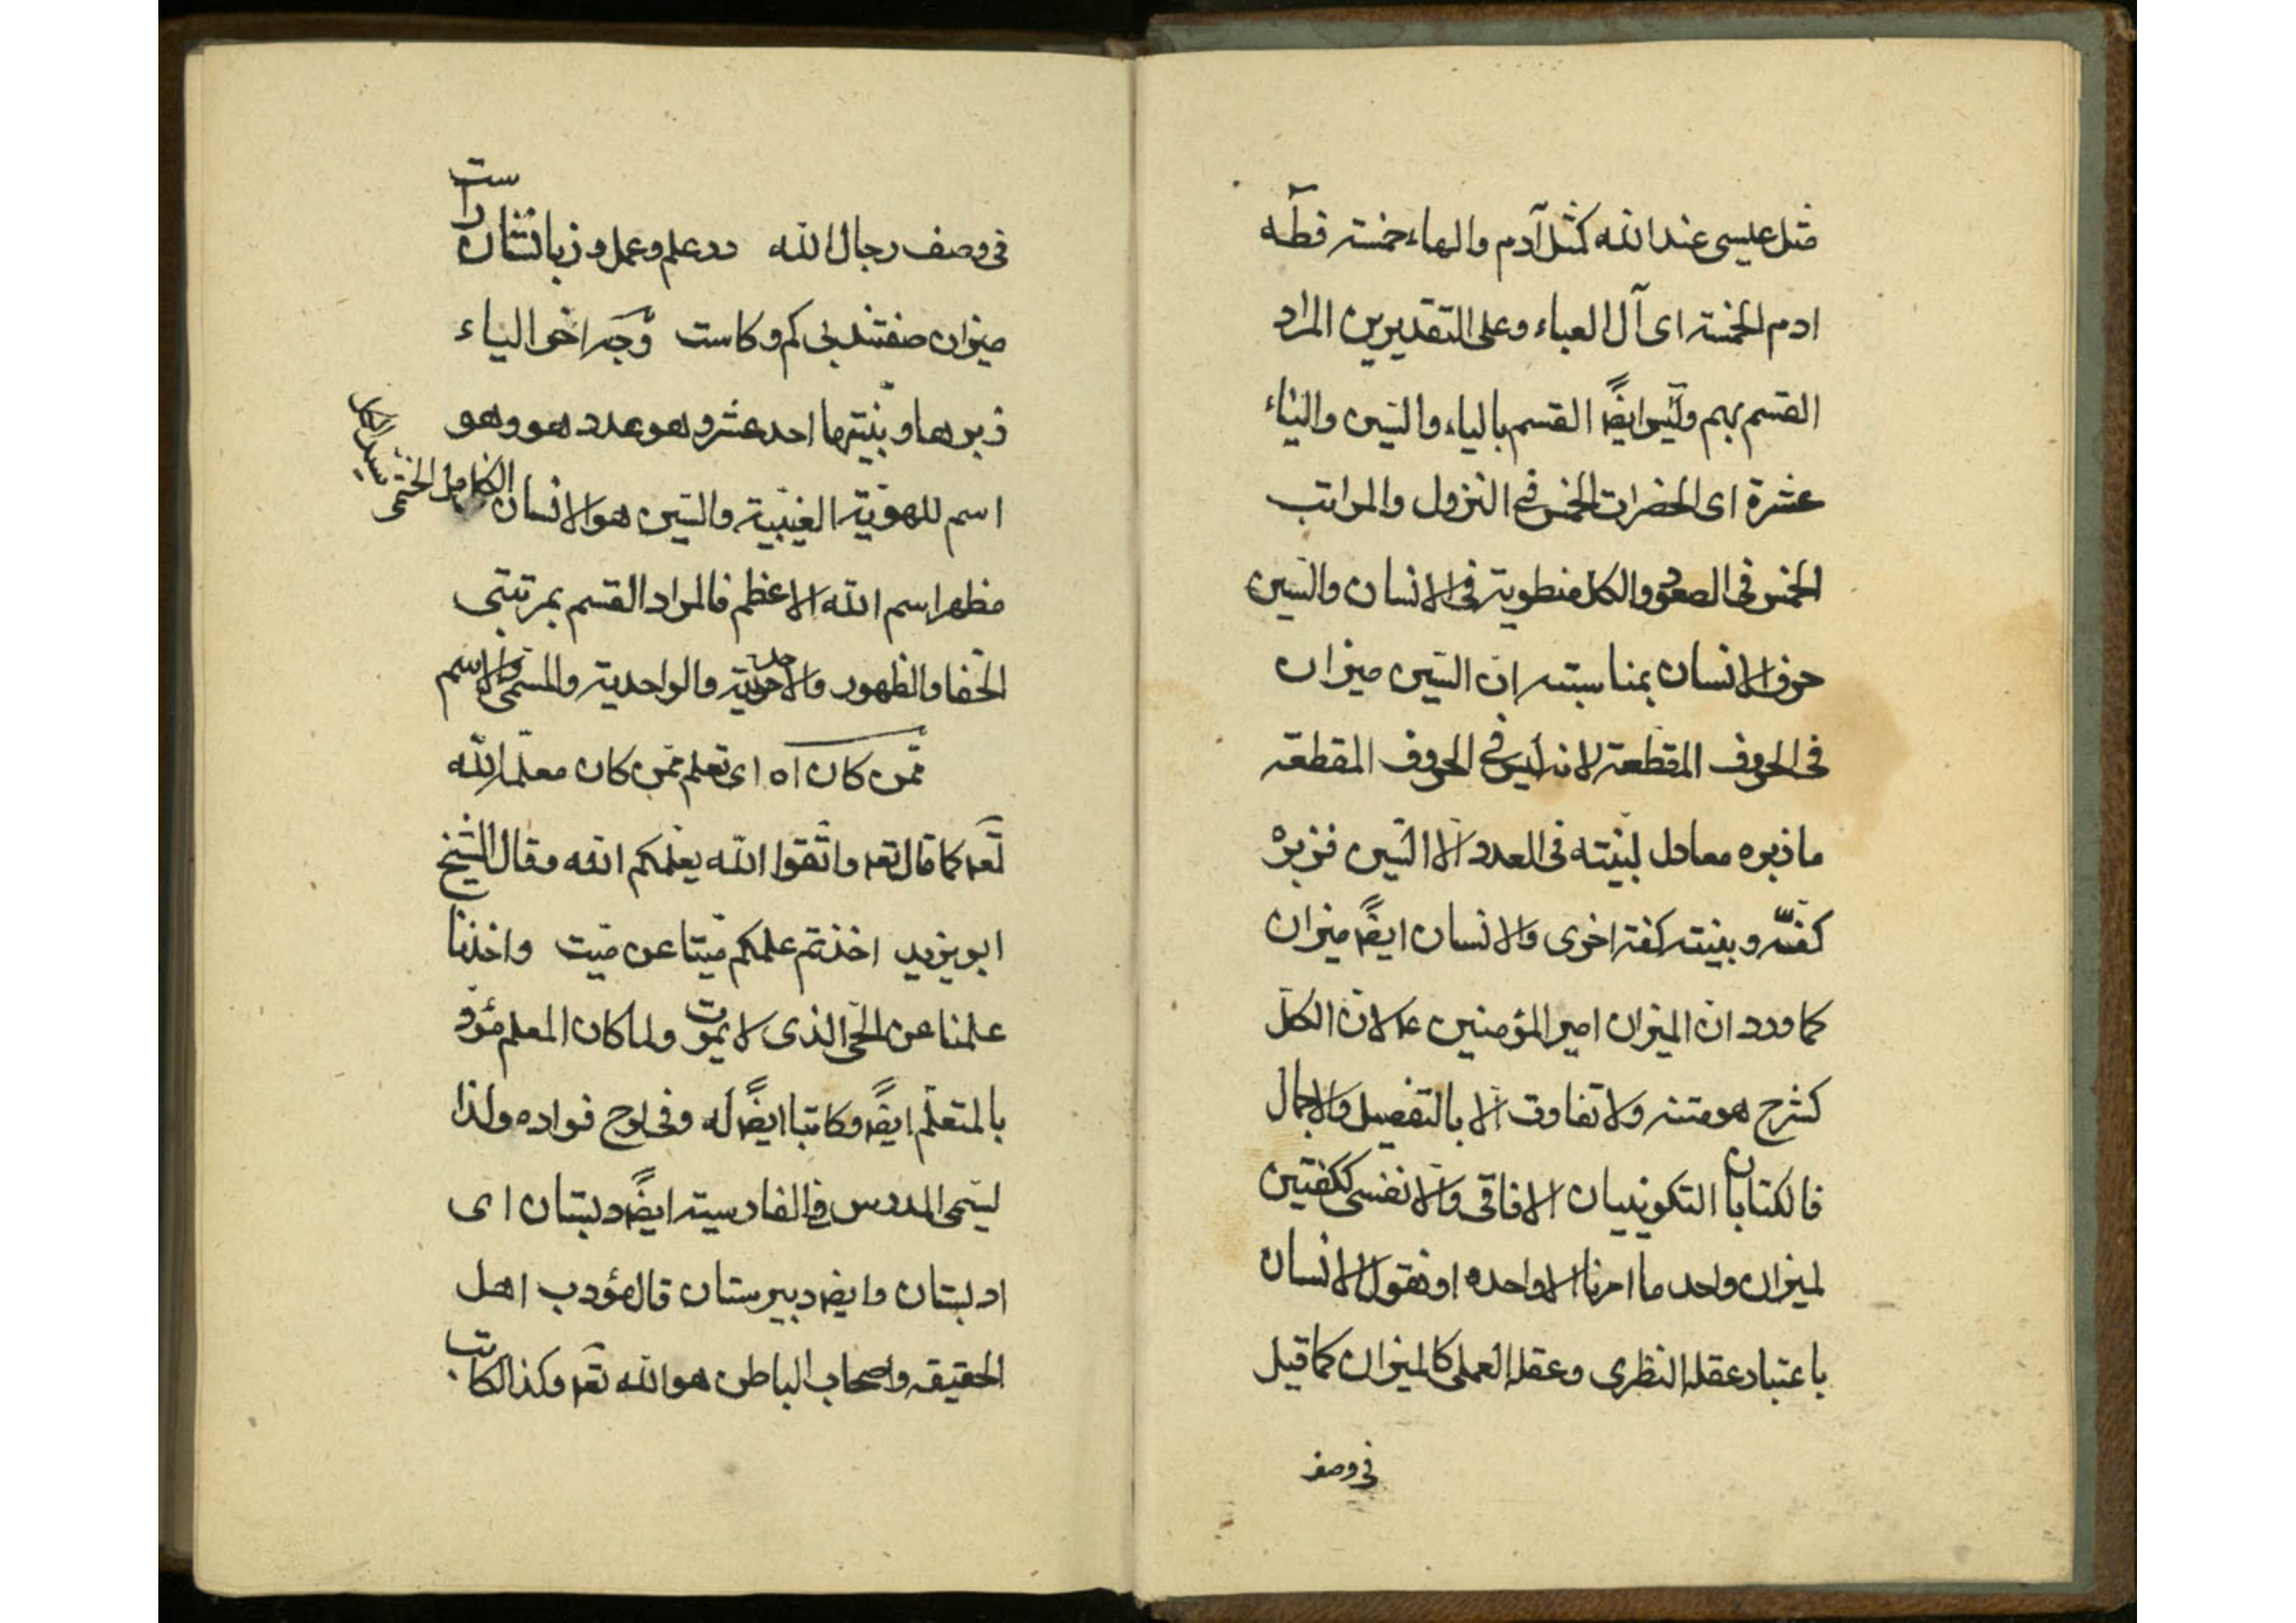 مثل عيسى عند الله كمثل آدم والهاء خمسة فطه
ادم الخمسة اى آل العباء وعلى التقديرين المراد
القسم بهم وليس ايضً القسم بالياء والسين والياء
عشرة اى الحضرات الخمس فى النزول والمراتب
الخمس فى الصعود والكل منطوية فى الانسان والسين
حرف الانسان بمناسبته ان السين ميزان
فى الحروف المقطعة لانه ليس فى الحروف المقطعة
ما زبره معادل لبينته فى العدد الا السين فزبره
كفته وبينته كفة اخرى والانسان ايضً ميزان
كما ورد ان الميزان امير المؤمنين ع لان الكل
كشرح هو متنه ولا تفاوت الا بالتفصيل والاجمال
فالكتابان التكوينيان الافاقى والانفسى ككفتين
لميزان واحد ما امرنا الا واحده او نقول الانسان
باعتبار عقله النظرى وعقله العملى كالميزان كما قيل
فى وصف
فى وصف رجال الله در علم وعمل و زبانشان راست
ميزان صفتند بى كم وكاست وجه اخر الياء
زبرها وبينتها احد عشر وهو عدد هو وهو
اسم للهوية الغيبية والسين هو الانسان الكامل الختمى سيد الكل
مظهر اسم الله الاعظم فالمراد القسم بمرتبتى
الخفا والظهور والاحدية والواحدية والمسمى والاسم
ممن كان اه اى تعلم ممن كان معلمه الله
تعه كما قال تعه واتقوا الله يعلمكم الله وقال الشيخ
ابو يزيد اخذتم علمكم ميتا عن ميت واخذنا
علمنا عن الحى الذى لا يموت ولما كان المعلم مؤدّ
بالمتعلم ايضً وكاتبا ايضً له وفى لوح فواده ولذا
ليسمى المدرس فى الفارسية ايضً دبستان اى
ادبستان وايضً دبيرستان قال مؤدب اهل
الحقيقه واصحاب الباطن هو الله تعه وكذا الكاتب